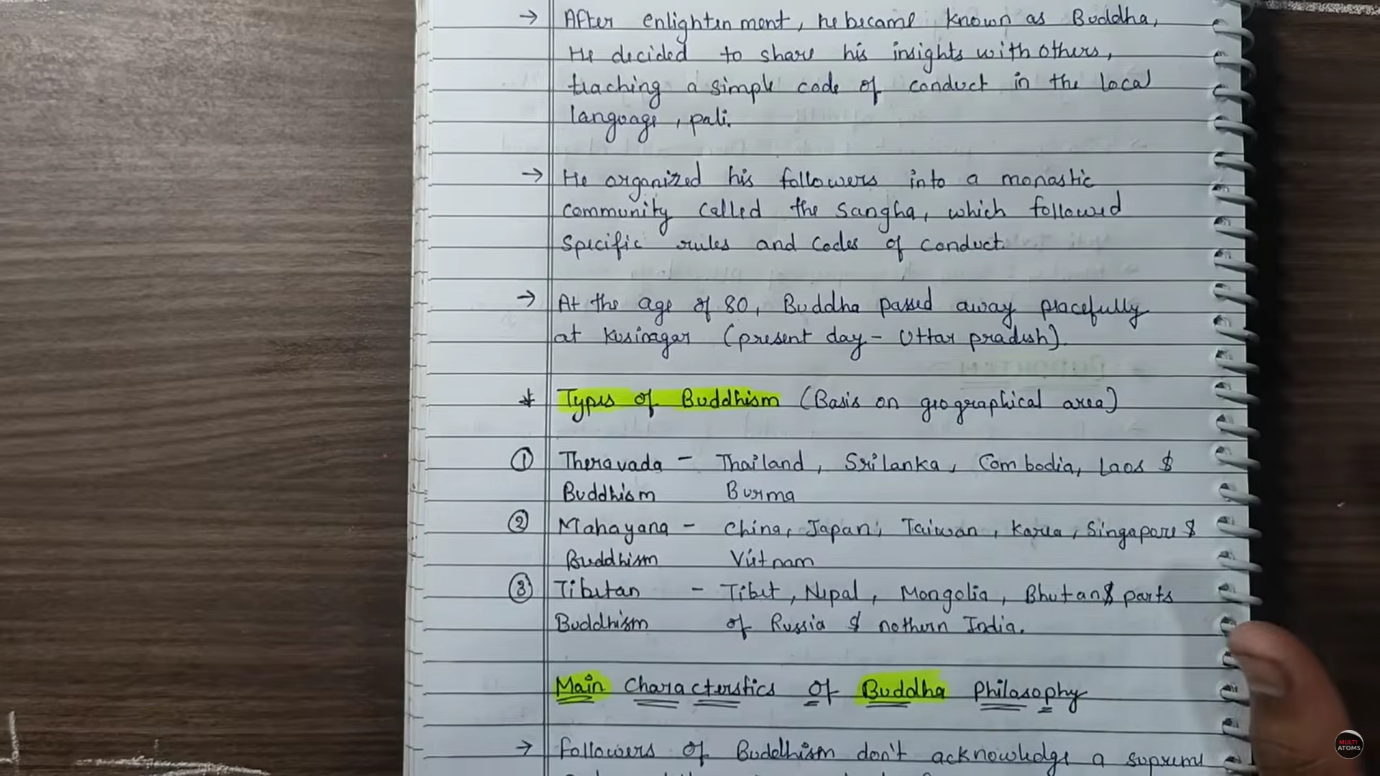 → After enlightenment, he became known as Buddha,
He decided to share his insights with others,
teaching a simple code of conduct in the local
language, pali.
→ He organized his followers into a monastic
community called the Sangha, which followed
specific rules and codes of conduct.
→ At the age of 80, Buddha passed away peacefully
at Kusinagar (present day - Uttar pradesh).
* Types of Buddhism (Basis on geographical area)
① Theravada - Thailand, Srilanka, Combodia, Laos $
Buddhism Burma
② Mahayana - China, Japan, Taiwan, Korea, Singapore $
Buddhism Vietnam
③ Tibetan - Tibet, Nepal, Mongolia, Bhutan $ parts
Buddhism of Russia $ nothern India.
Main Characterstics of Buddha Philosophy
→ Followers of Buddhism don't acknowledge a supreme
MULTI
ATOMS